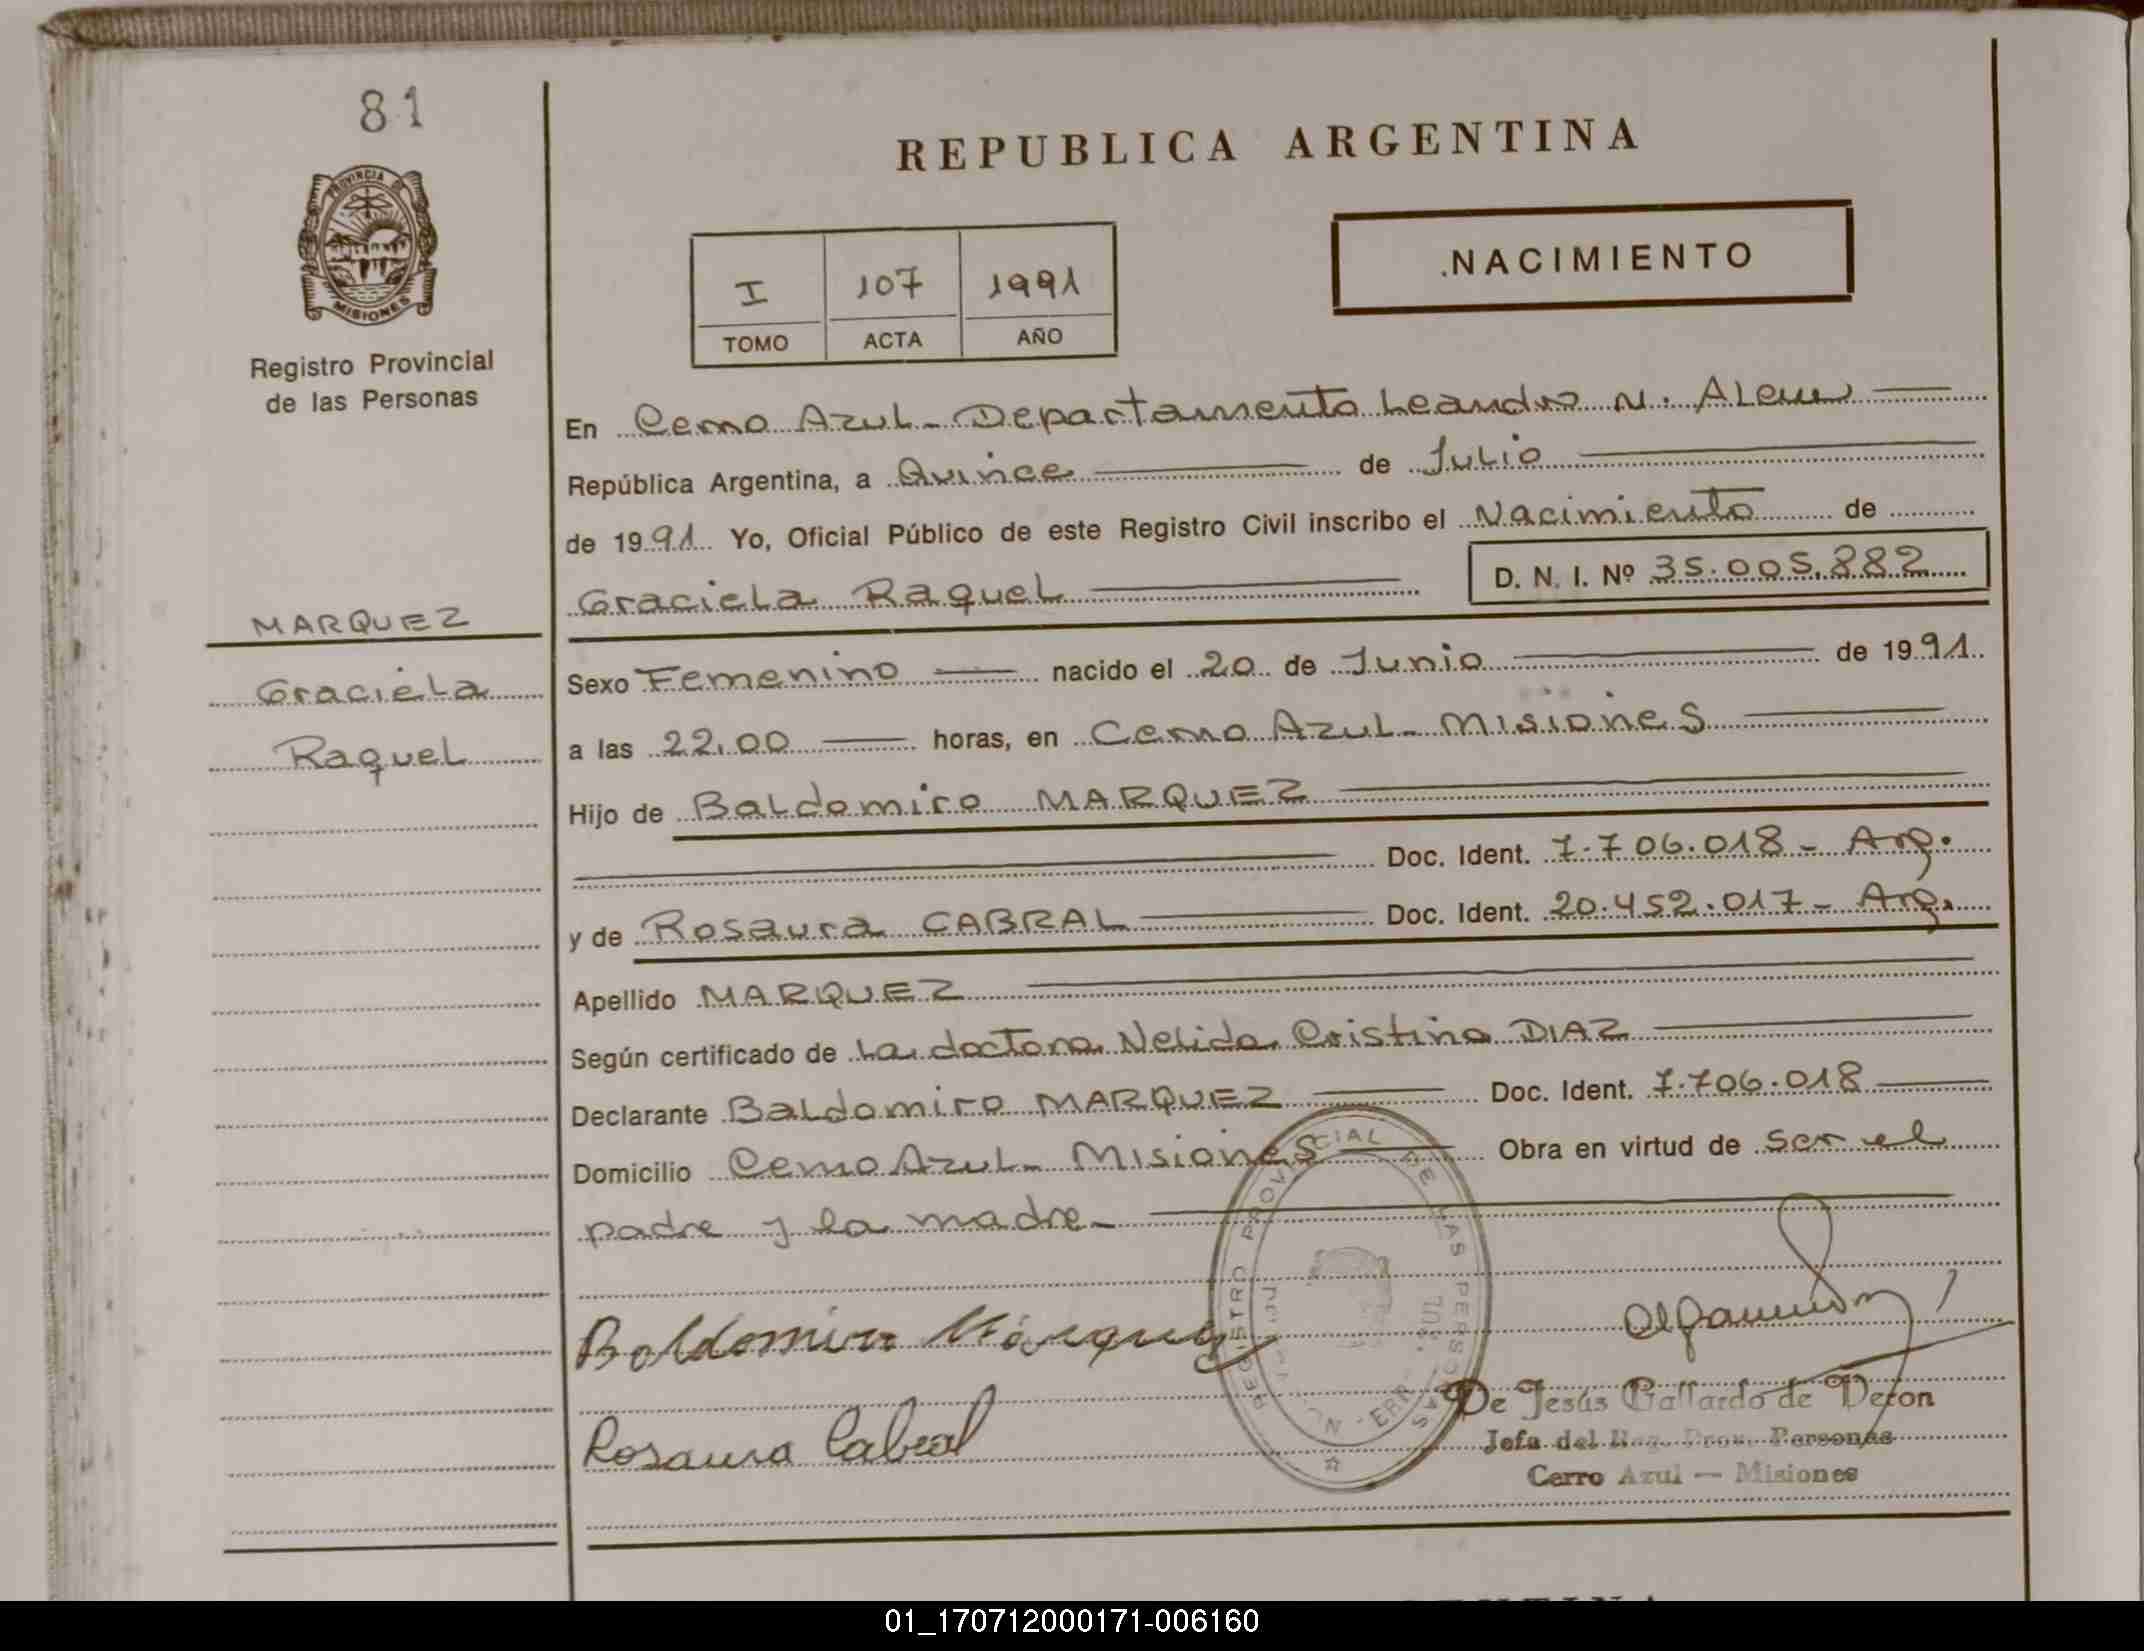 81
PROVINCIA DE
MISIONES
Registro Provincial
de las Personas
MARQUEZ
Graciela
Raquel
REPUBLICA ARGENTINA
I 107 1991
TOMO ACTA AÑO
.NACIMIENTO
En Cerro Azul - Departamento Leandro N. Alem
República Argentina, a Quince de Julio
de 1991 Yo, Oficial Público de este Registro Civil inscribo el Nacimiento de
Graciela Raquel D. N. I. Nº 35.005.882
Sexo Femenino nacido el 20 de Junio de 1991
a las 22.00 horas, en Cerro Azul - Misiones
Hijo de Baldomiro MARQUEZ
Doc. Ident. 7.706.018 - Arg.
y de Rosaura CABRAL Doc. Ident. 20.452.017 - Arg.
Apellido MARQUEZ
Según certificado de La doctora Nelida Cristina DIAZ
Declarante Baldomiro MARQUEZ Doc. Ident. 7.706.018
Domicilio Cerro Azul - Misiones Obra en virtud de ser el
padre y la madre -
REGISTRO PROVINCIAL DE LAS PERSONAS
Baldomiro Márquez
Rosaura Cabral
De Jesús Gallardo de Veron
Jefa del Reg. Prov. Personas
Cerro Azul — Misiones
01_170712000171-006160